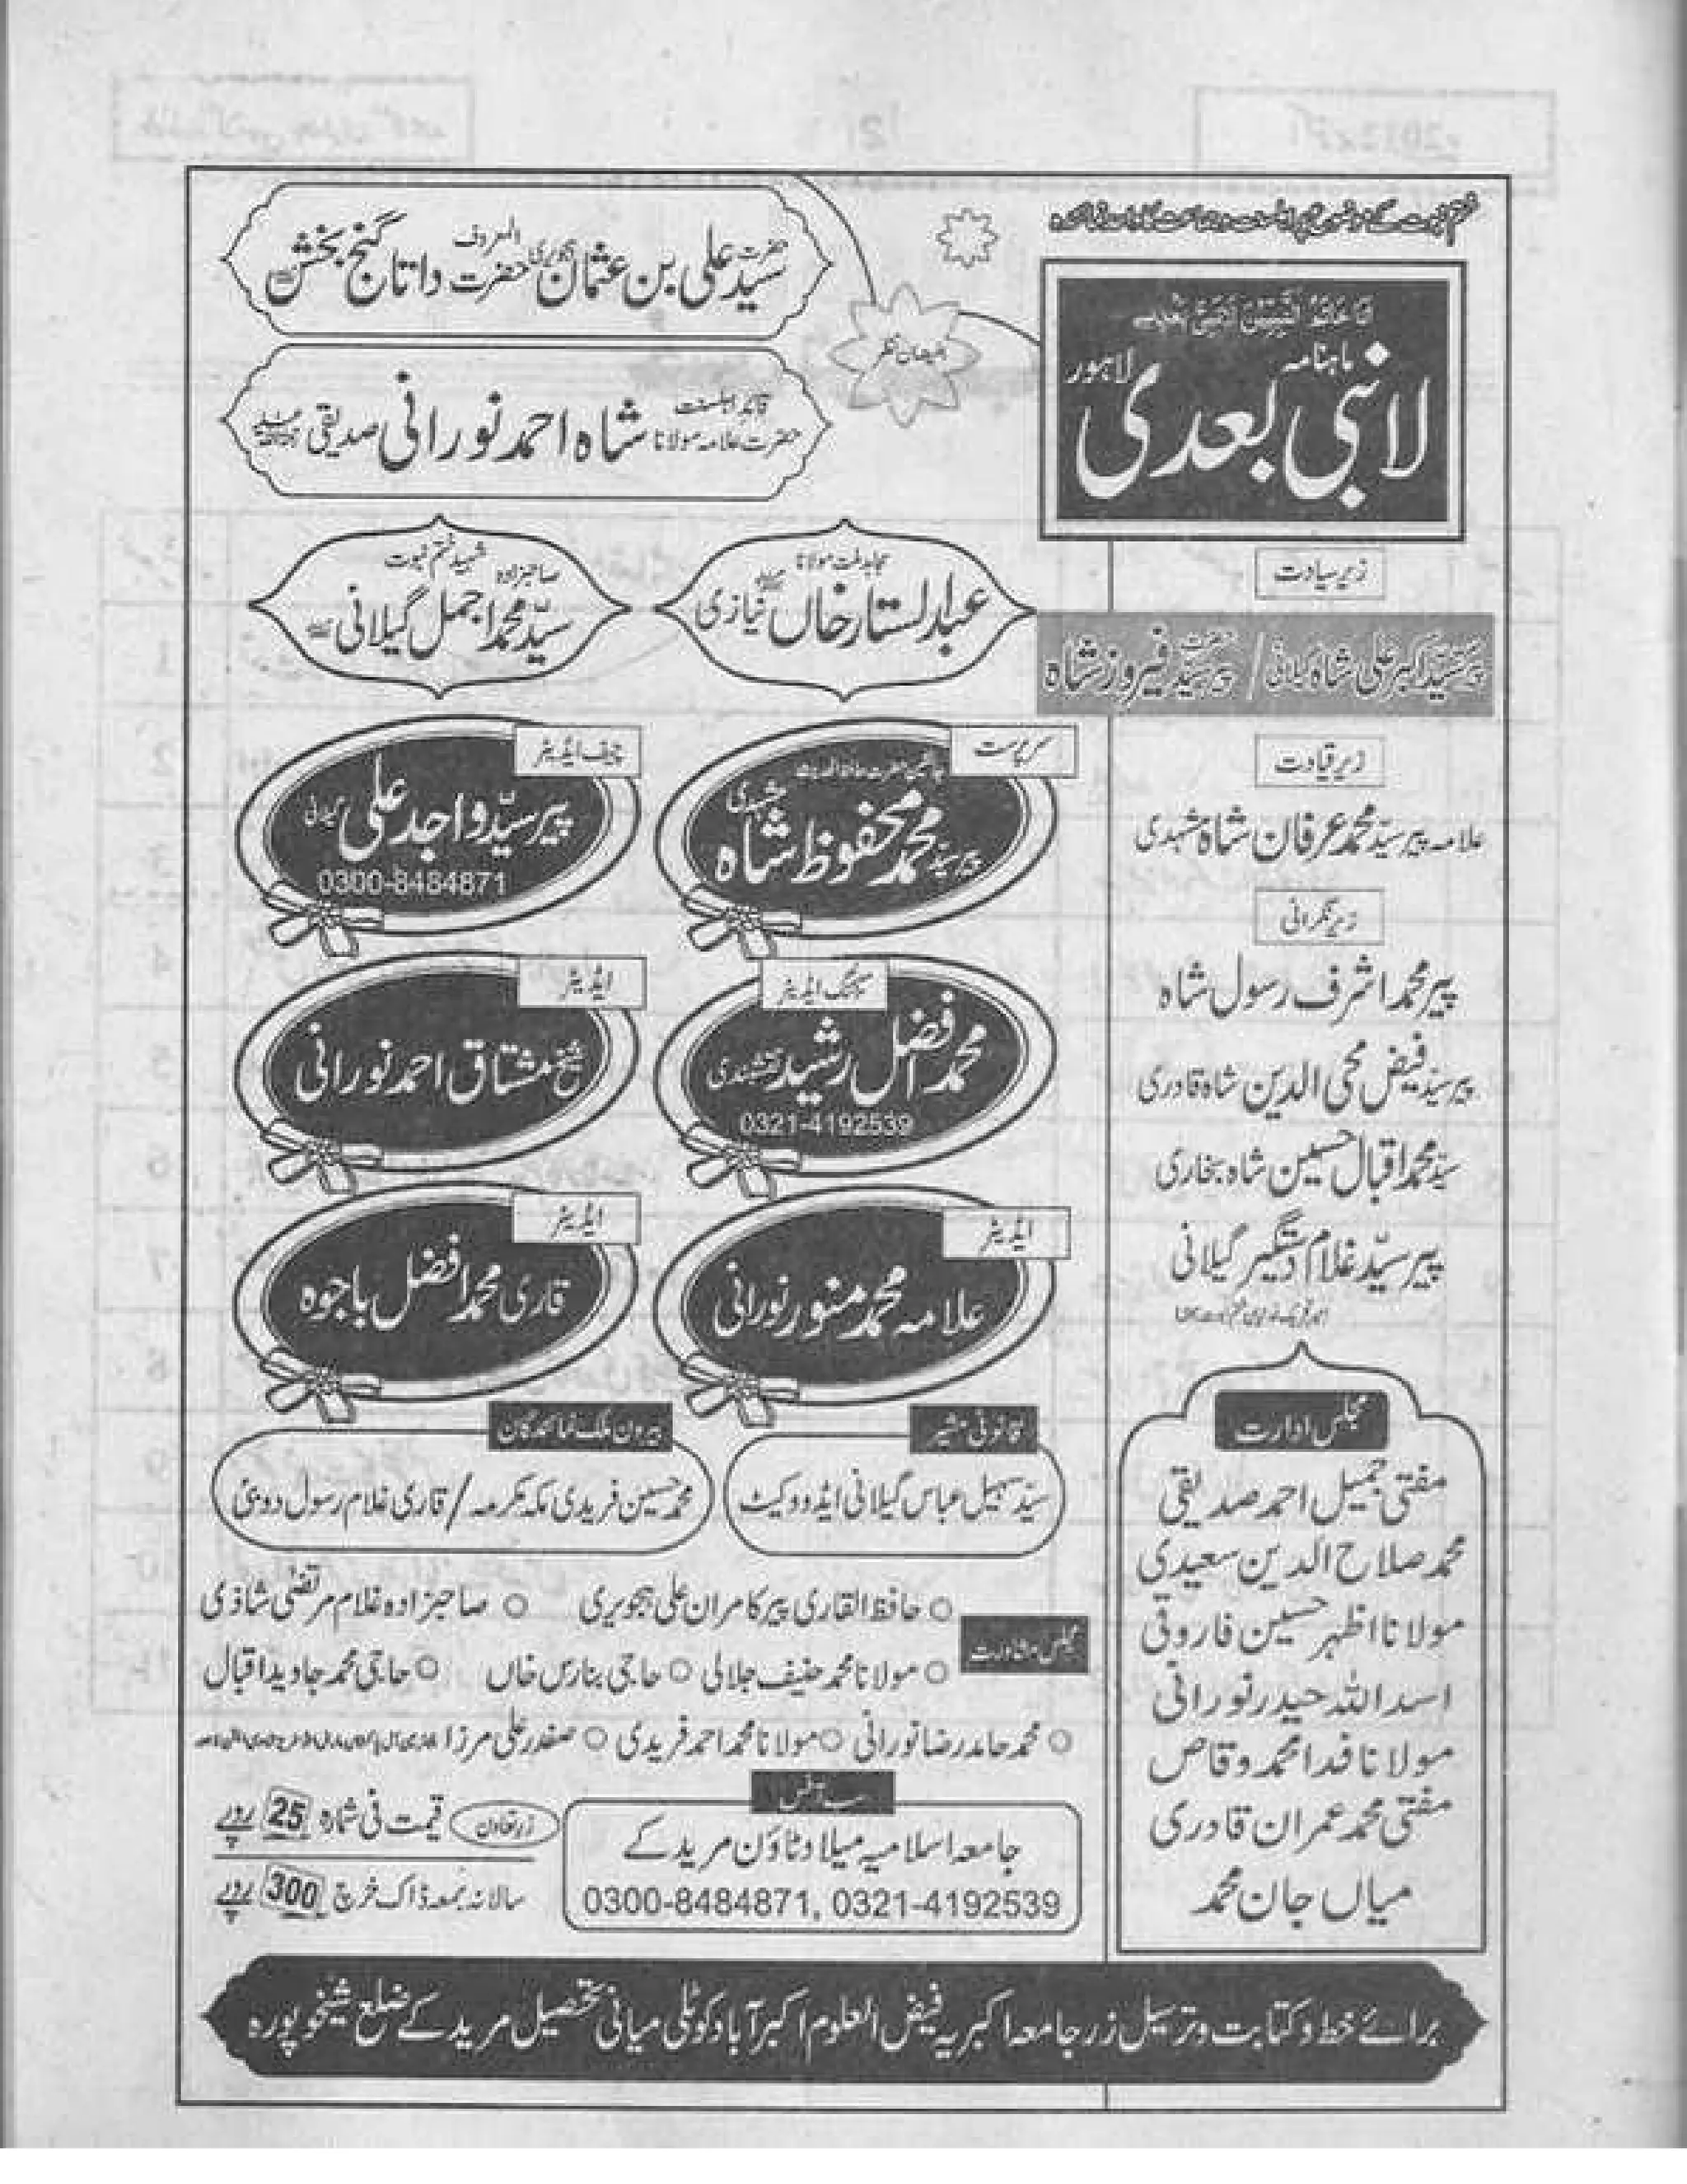 ختم نبوت کے موضوع پر
انا خاتم النبیین لا نبی بعدی
ماہنامہ
لاہور
لا نبی بعدی
بفیضان نظر
حضرت سید علی بن عثمان ہجویری المعروف حضرت داتا گنج بخش
قائد اہلسنت
حضرت علامہ مولانا شاہ احمد نورانی صدیقی
مجاہد ملت مولانا
عبدالستار خاں نیازی
شہید ختم نبوت
صاحبزادہ
سید محمد اجمل گیلانی
زیر سیادت
پیر سید اکبر علی شاہ گیلانی / حضرت پیر سید فیروز شاہ
زیر قیادت
علامہ پیر سید محمد عرفان شاہ مشہدی
زیر نگرانی
پیر محمد اشرف رسول شاہ
پیر سید فیض محی الدین شاہ قادری
سید محمد اقبال حسین شاہ بخاری
پیر سید غلام دستگیر گیلانی
مجلس ادارت
مفتی جمیل احمد صدیقی
محمد صلاح الدین سعیدی
مولانا اظہر حسین فاروقی
اسد اللہ حیدر نورانی
مولانا فدا محمد وقاص
مفتی محمد عمران قادری
میاں جان محمد
سرپرست
پیر سید محمد محفوظ شاہ مشہدی
چیف ایڈیٹر
پیر سید واجد علی گیلانی
0300-8484871
مینجنگ ایڈیٹر
محمد افضل رشید نقشبندی
0321-4192539
ایڈیٹر
شیخ مشتاق احمد نورانی
ایڈیٹر
علامہ محمد منور نورانی
ایڈیٹر
قاری محمد افضل باجوہ
قانونی مشیر
سید سہیل عباس گیلانی ایڈووکیٹ
بیرون ملک نمائندگان
محمد حسین فریدی مکہ مکرمہ / قاری غلام رسول دوبئی
مجلس مشاورت
○ حافظ القاری پیر کامران علی ہجویری ○ صاحبزادہ غلام مرتضٰی شاذی
○ مولانا محمد حنیف جلالی ○ حاجی بنارس خاں ○ حاجی محمد جاوید اقبال
○ محمد حامد رضا نورانی ○ مولانا محمد احمد فریدی ○ صفدر علی مرزا
سب آفس
جامعہ اسلامیہ میلاد ٹاؤن مریدکے
0300-8484871, 0321-4192539
زر تعاون
قیمت فی شمارہ 25 روپے
سالانہ بمعہ ڈاک خرچ 300 روپے
برائے خط و کتابت و ترسیل زر جامعہ اکبریہ فیض العلوم اکبر آباد کوٹلی میانی تحصیل مریدکے ضلع شیخوپورہ